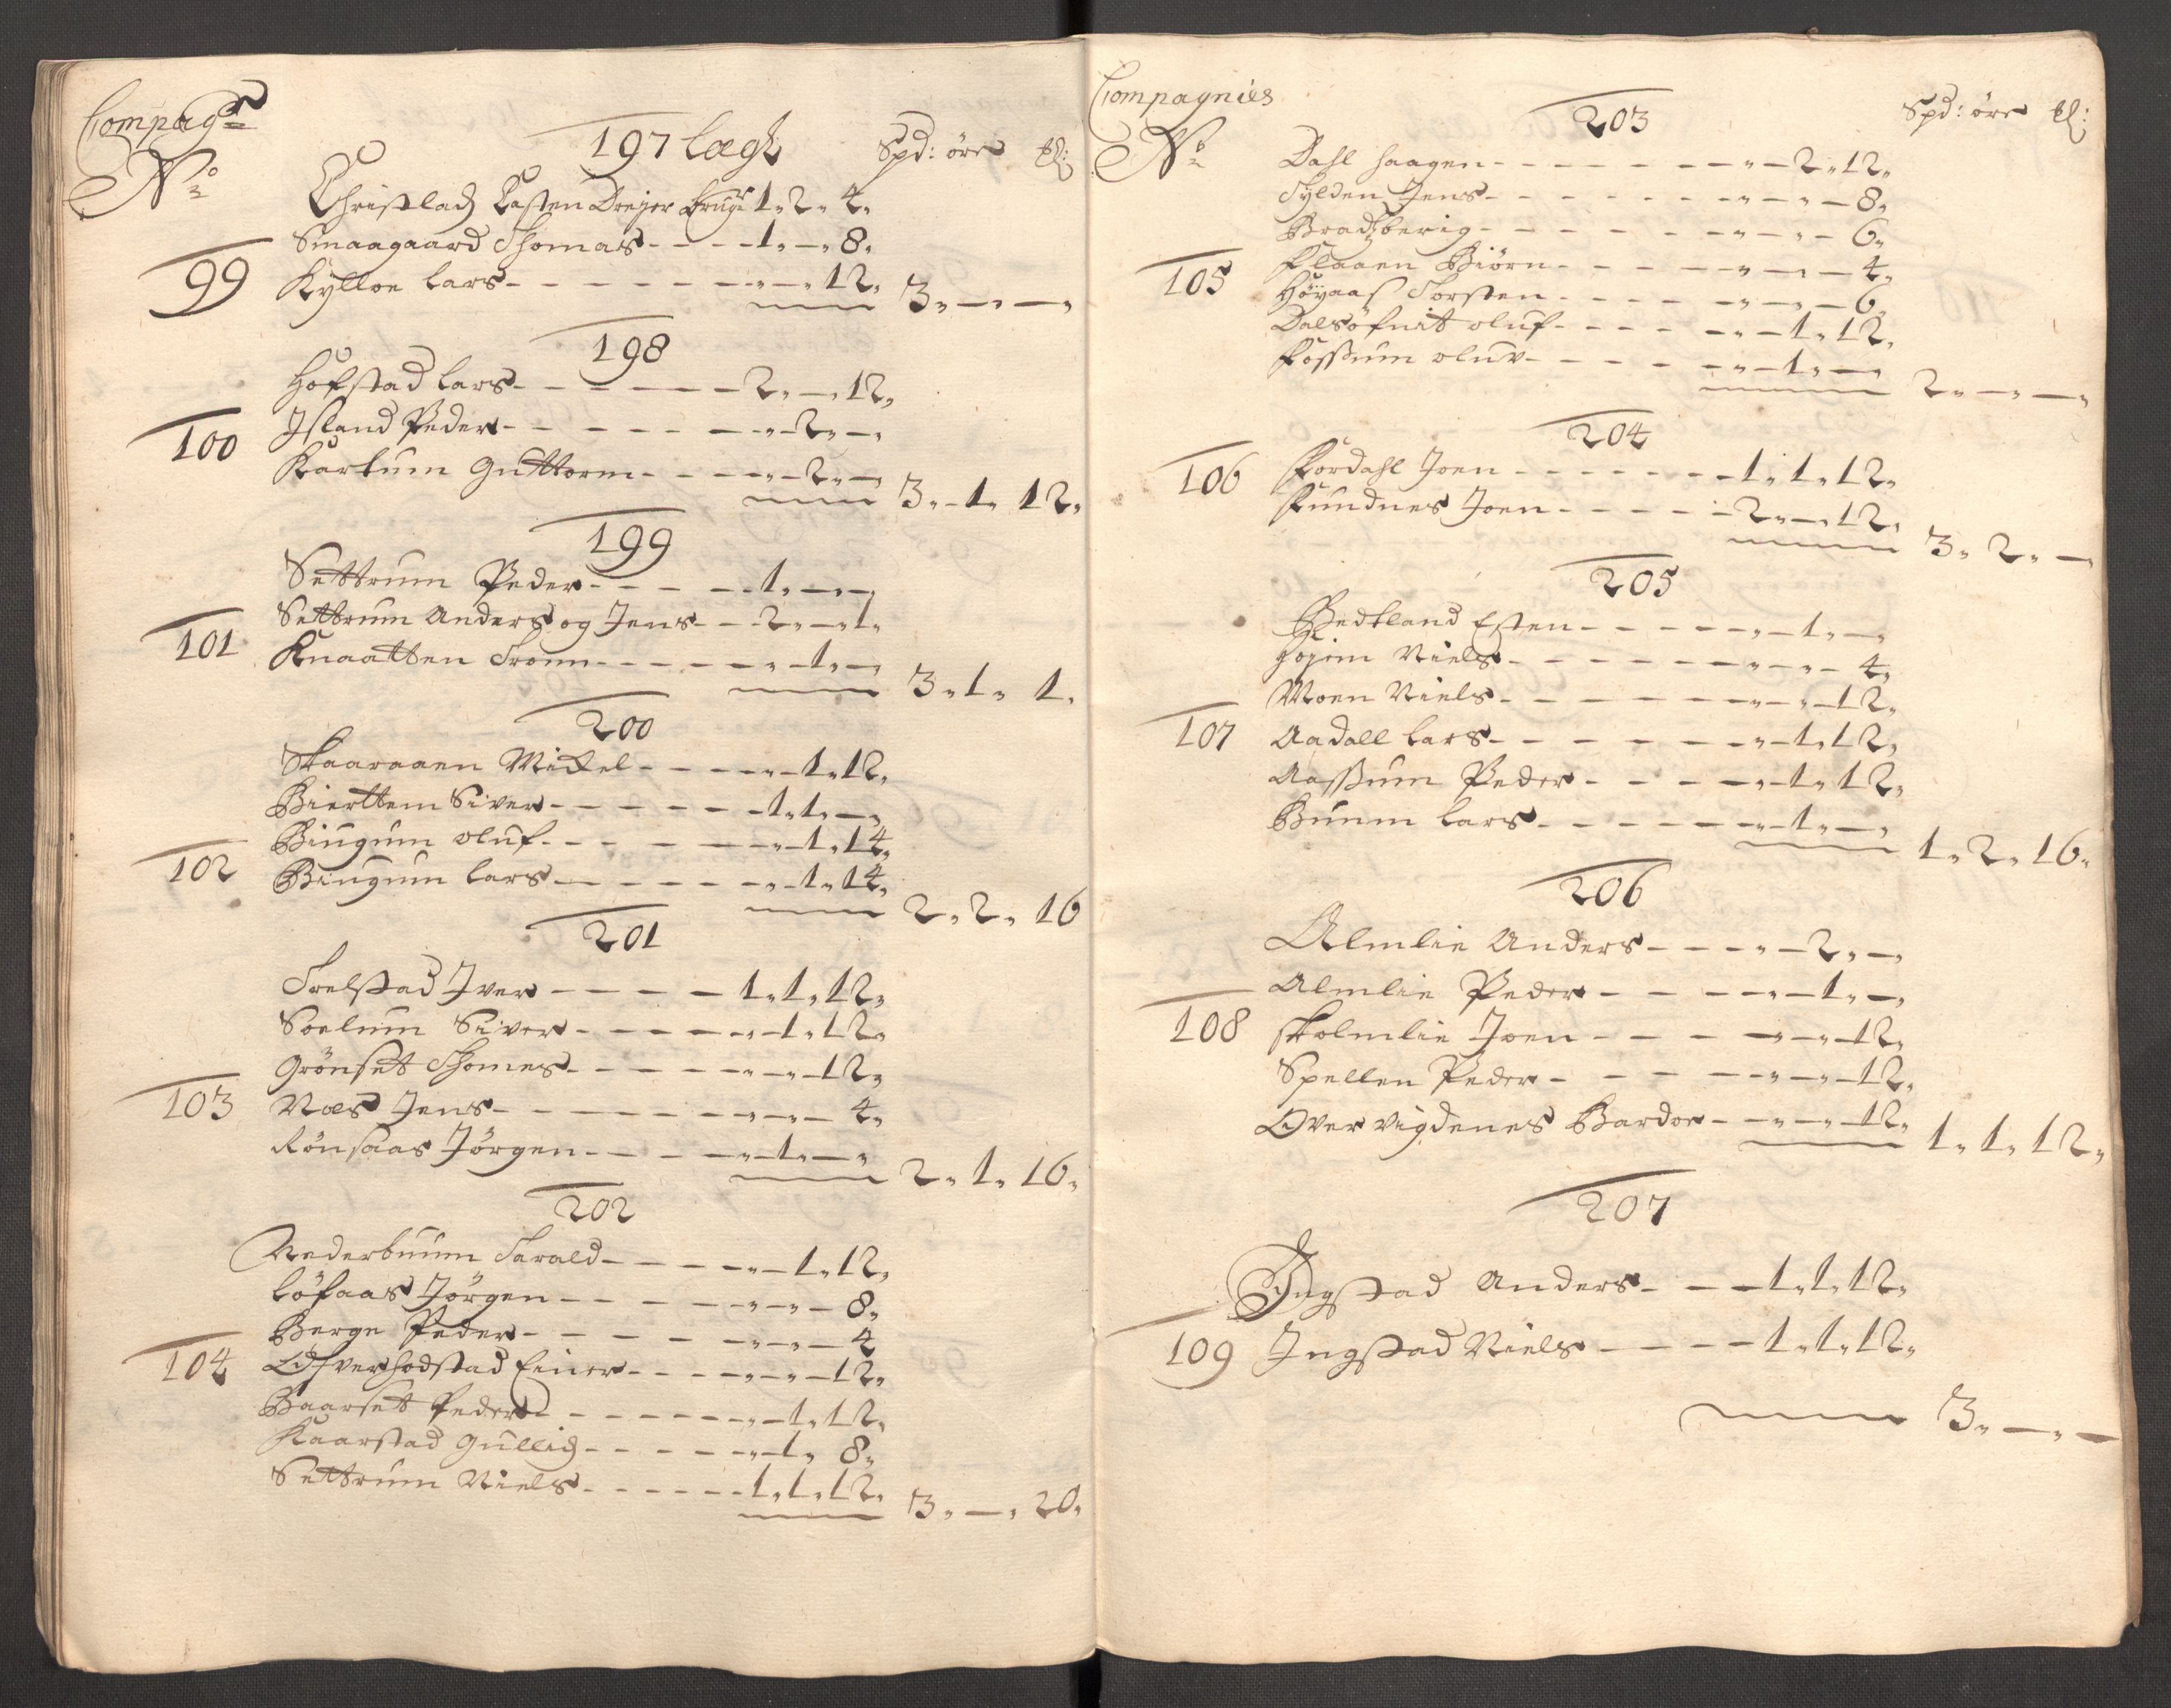 Compag:s
No
197 lægt Spd: öre
Christlad Casten Dreyer bruger 1„ 2„ 4„
Smaagaard Thomas - - - - 1„ — „ 8„
99 Kylloe Lars - - - - - „ — „ 12„ 3„ — „ — „
198
Hofstad Lars - - - - 2„ — „ 12„
100 Island Peder - - - - - „ - 2„ — „
Kartum Guttorm - - - „ - 2„ — „ 3„ - 1„ 12„
199
Settrum Peder - - - - 1„ — „ — „
Settrum Anders og Jens - - 2„ — „ 1„
101 Knaatten Tronn - - - - „ - 1„ — „ 3„ 1„ 1„
200
Skaaraaen Mickel - - - - „ - 1„ 12„
Bierttem Siver - - - - - 1„ 1„ — „
102 Biugum oluf - - - - - „ - 1„ 14„
Biugum Lars - - - - - „ - 1„ 14„ 2„ 2„ 16
201
Trelstad Iver - - - - 1„ 1„ 12„
Soelum Siver - - - - - „ - 1„ 12„
Grönset Thomes - - - - „ - „ - 12„
103 Næs Jens - - - - - - „ - „ - 4„
Rönsaas Jörgen - - - - „ - 1„ — „ 2„ 1„ 16„
202
Nederbuum Tarald - - - - „ - 1„ 12„
Löfaas Jörgen - - - - „ - „ - 8„
Berge Peder - - - - - „ - „ - 4
104 Ofverhodstad Einer - - - - „ - „ - 12„
Baarset Peder - - - - - „ - 1„ 12„
Kaarstad Gullich - - - - „ - 1„ 8„
Settrum Niels - - - - - 1„ 1„ 12„ 3„ — „ 20„
Compagnies
No
203 Spd: öre
Dahl Haagen - - - - - „ - 2„ 12„
Sylden Jens - - - - - - „ - „ - 8„
Bradzberig - - - - - „ - „ - 6„
105 Flaaen Biörn - - - - „ - „ - 4„
Höyaas Torsten - - - - „ - „ - 6„
Dalsöfnit oluf - - - - „ - 1„ 12„
Fossum oluv - - - - - „ - 1„ — „ 2„ — „ — „
204
106 Fordahl Joen - - - - - 1„ 1„ 12„
Fundnes Joen - - - - - 2„ — „ 12„ 3„ 2„ —
205
Bedtland Esten - - - - - „ - 1„ — „
Hojem Niels - - - - - „ - „ - 4„
Moen Niels - - - - - - „ - „ - 12„
107 Aadall Lars - - - - - „ - 1„ 12„
Aassum Peder - - - - „ - 1„ 12„
Buum Lars - - - - - „ - 1„ — „ 1„ 2„ 16„
206
Almlie Anders - - - - „ - 2„ — „
Almlie Peder - - - - „ - 1„ — „
108 Skolmlie Joen - - - - „ - „ - 12„
Spellen Peder - - - - „ - „ - 12„
Over vigdenes Bardor - - „ - „ - 12„ 1„ 1„ 12„
207
Ingstad Anders - - - 1„ 1„ 12„
109 Ingstad Niels - - - - 1„ 1„ 12„
3„ — „ —